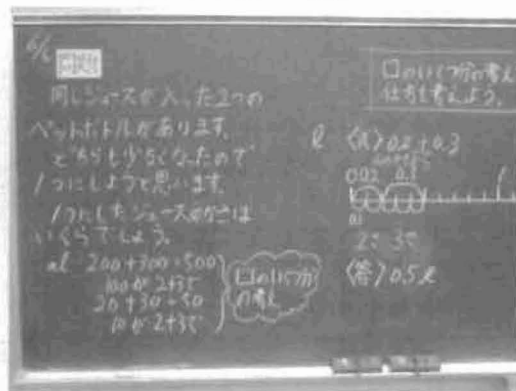 6/6
同じジュースが入った2つの
ペットボトルがあります。
どちらも少なくなったので
1つにしようと思います。
1つにしたジュースのかさは
いくらでしょう。
200+300=500
100が2+3こ
20+30=50
10が2+3こ
□のいくつ分
の考え
□のいくつ分の考え
仕方を考えよう。
ℓ 〈式〉0.2+0.3
0 0.2 0.3 1
0.1
2こ 3こ
〈答〉0.5ℓ